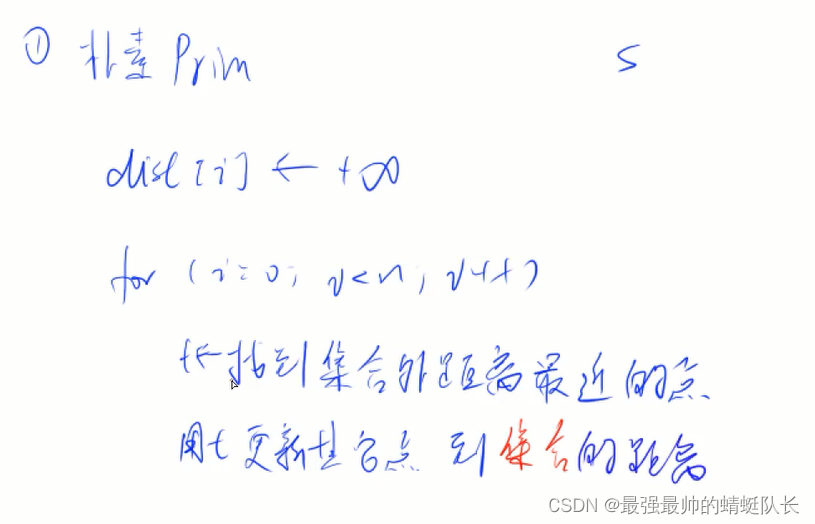 ① 朴素Prim S
dist[i] ← +∞
for (i=0; i<n; i++)
t←找到集合外距离最近的点
用t更新其它点到集合的距离
CSDN @最强最帅的蜻蜓队长